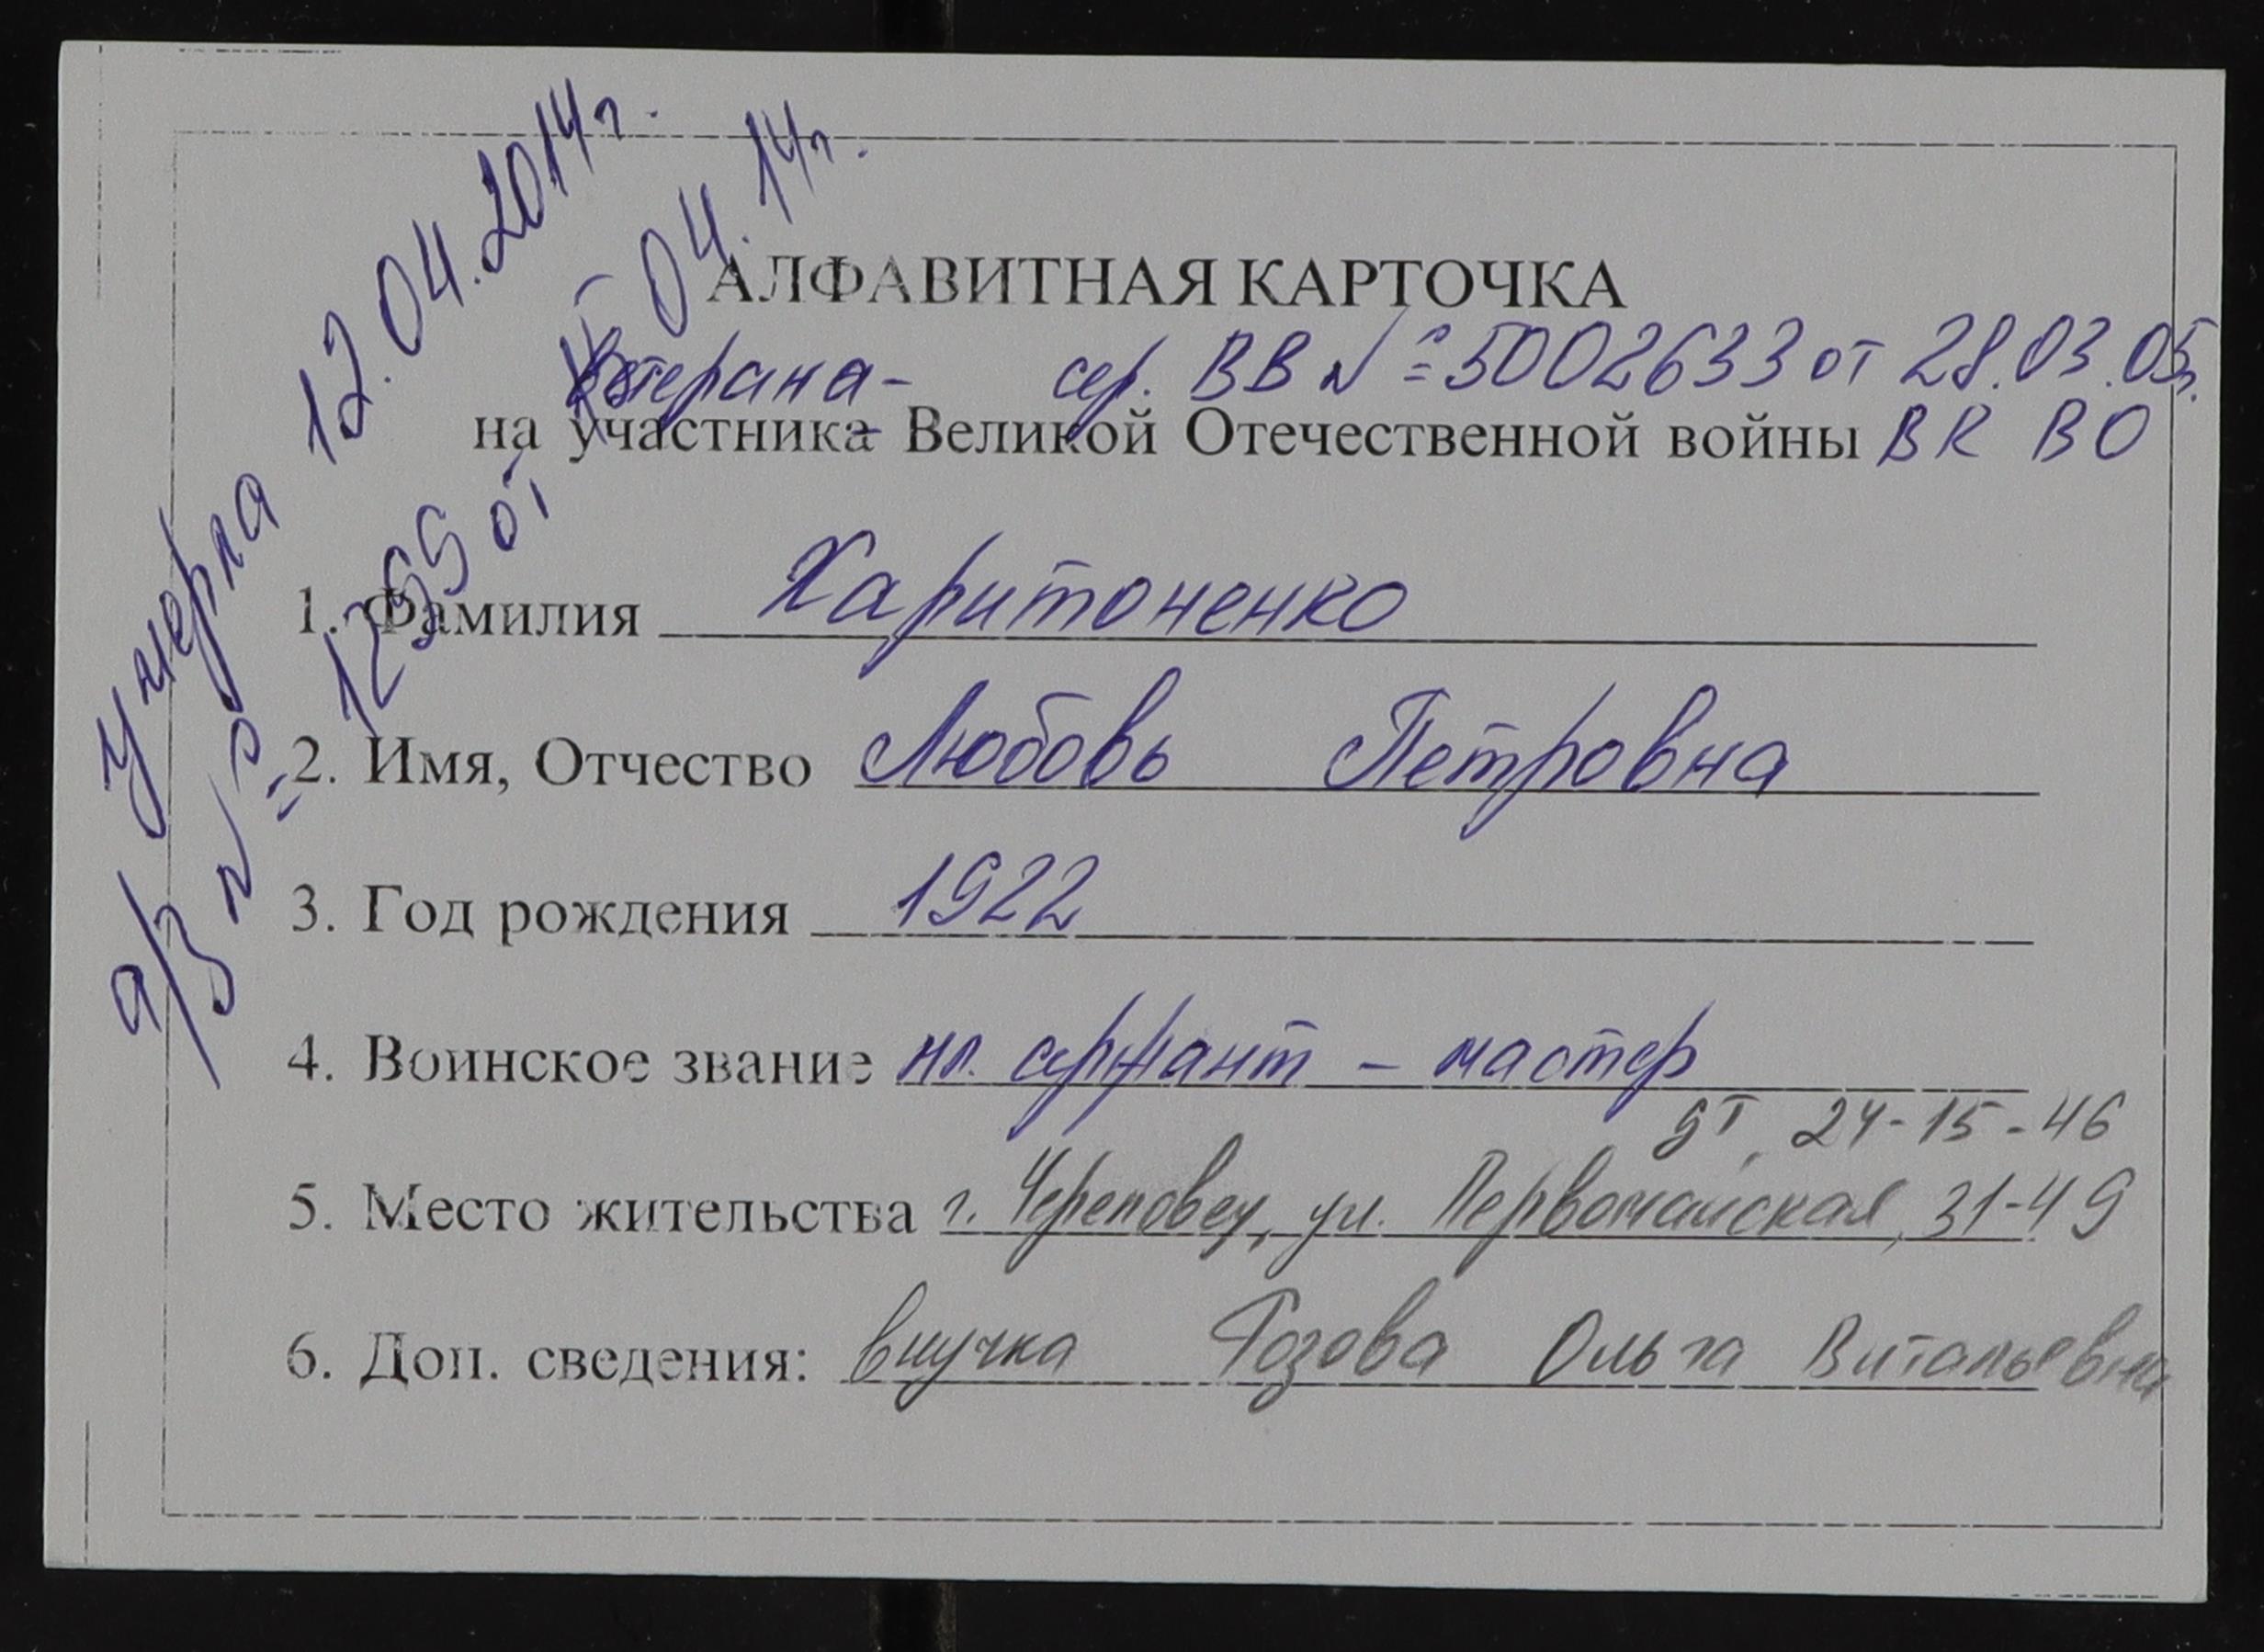 умерла 12.04.2014г.
а/з № от 04.14г.
АЛФАВИТНАЯ КАРТОЧКА
Ветерана- сер. ВВ № 5002633 от 28.03.05г.
на участника Великой Отечественной войны ВК ВО
1. Фамилия Харитоненко
2. Имя, Отчество Любовь Петровна
3. Год рождения 1922
4. Воинское звание мл. сержант - мастер
дт. 24-15-46
5. Место жительства г. Череповец, ул. Первомайская, 31-49
6. Доп. сведения: внучка Розова Ольга Витальевна